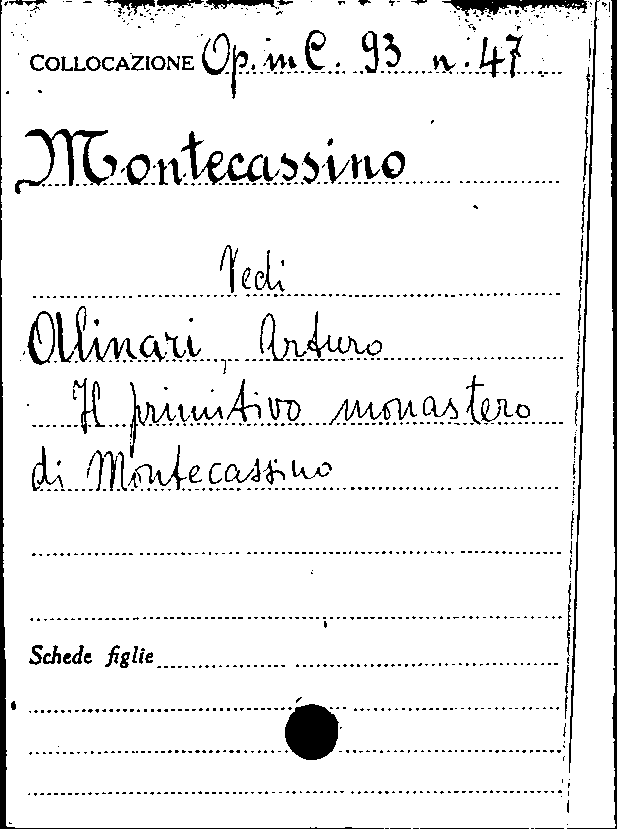 COLLOCAZIONE Op. in C. 93 n. 47
Montecassino
Vedi
Alinari, Arturo
Il primitivo monastero
di Montecassino
Schede figlie